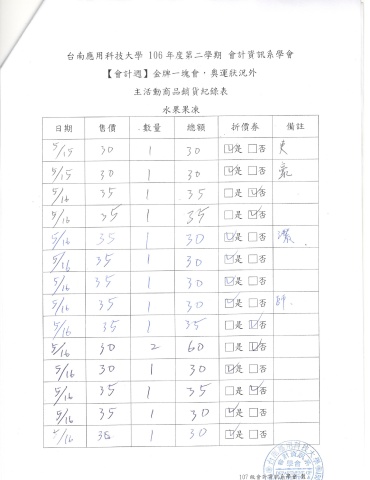 台南應用科技大學 106 年度第二學期 會計資訊系學會
【會計週】金牌一塊會，奧運狀況外
主活動商品銷貨紀錄表
水果果凍
日期 售價 數量 總額 折價券 備註
5/15 30 1 30 ☑是 □否
5/15 30 1 30 ☑是 □否
5/16 35 1 35 □是 ☑否
5/16 35 1 35 □是 ☑否
5/16 35 1 30 ☑是 □否
5/16 35 1 30 ☑是 □否
5/16 35 1 30 ☑是 □否
5/16 35 1 30 ☑是 □否
5/16 35 1 35 □是 ☑否
5/16 30 2 60 □是 ☑否
5/16 30 1 30 □是 ☑否
5/16 35 1 35 □是 ☑否
5/16 35 1 30 ☑是 □否
5/16 35 1 30 ☑是 □否